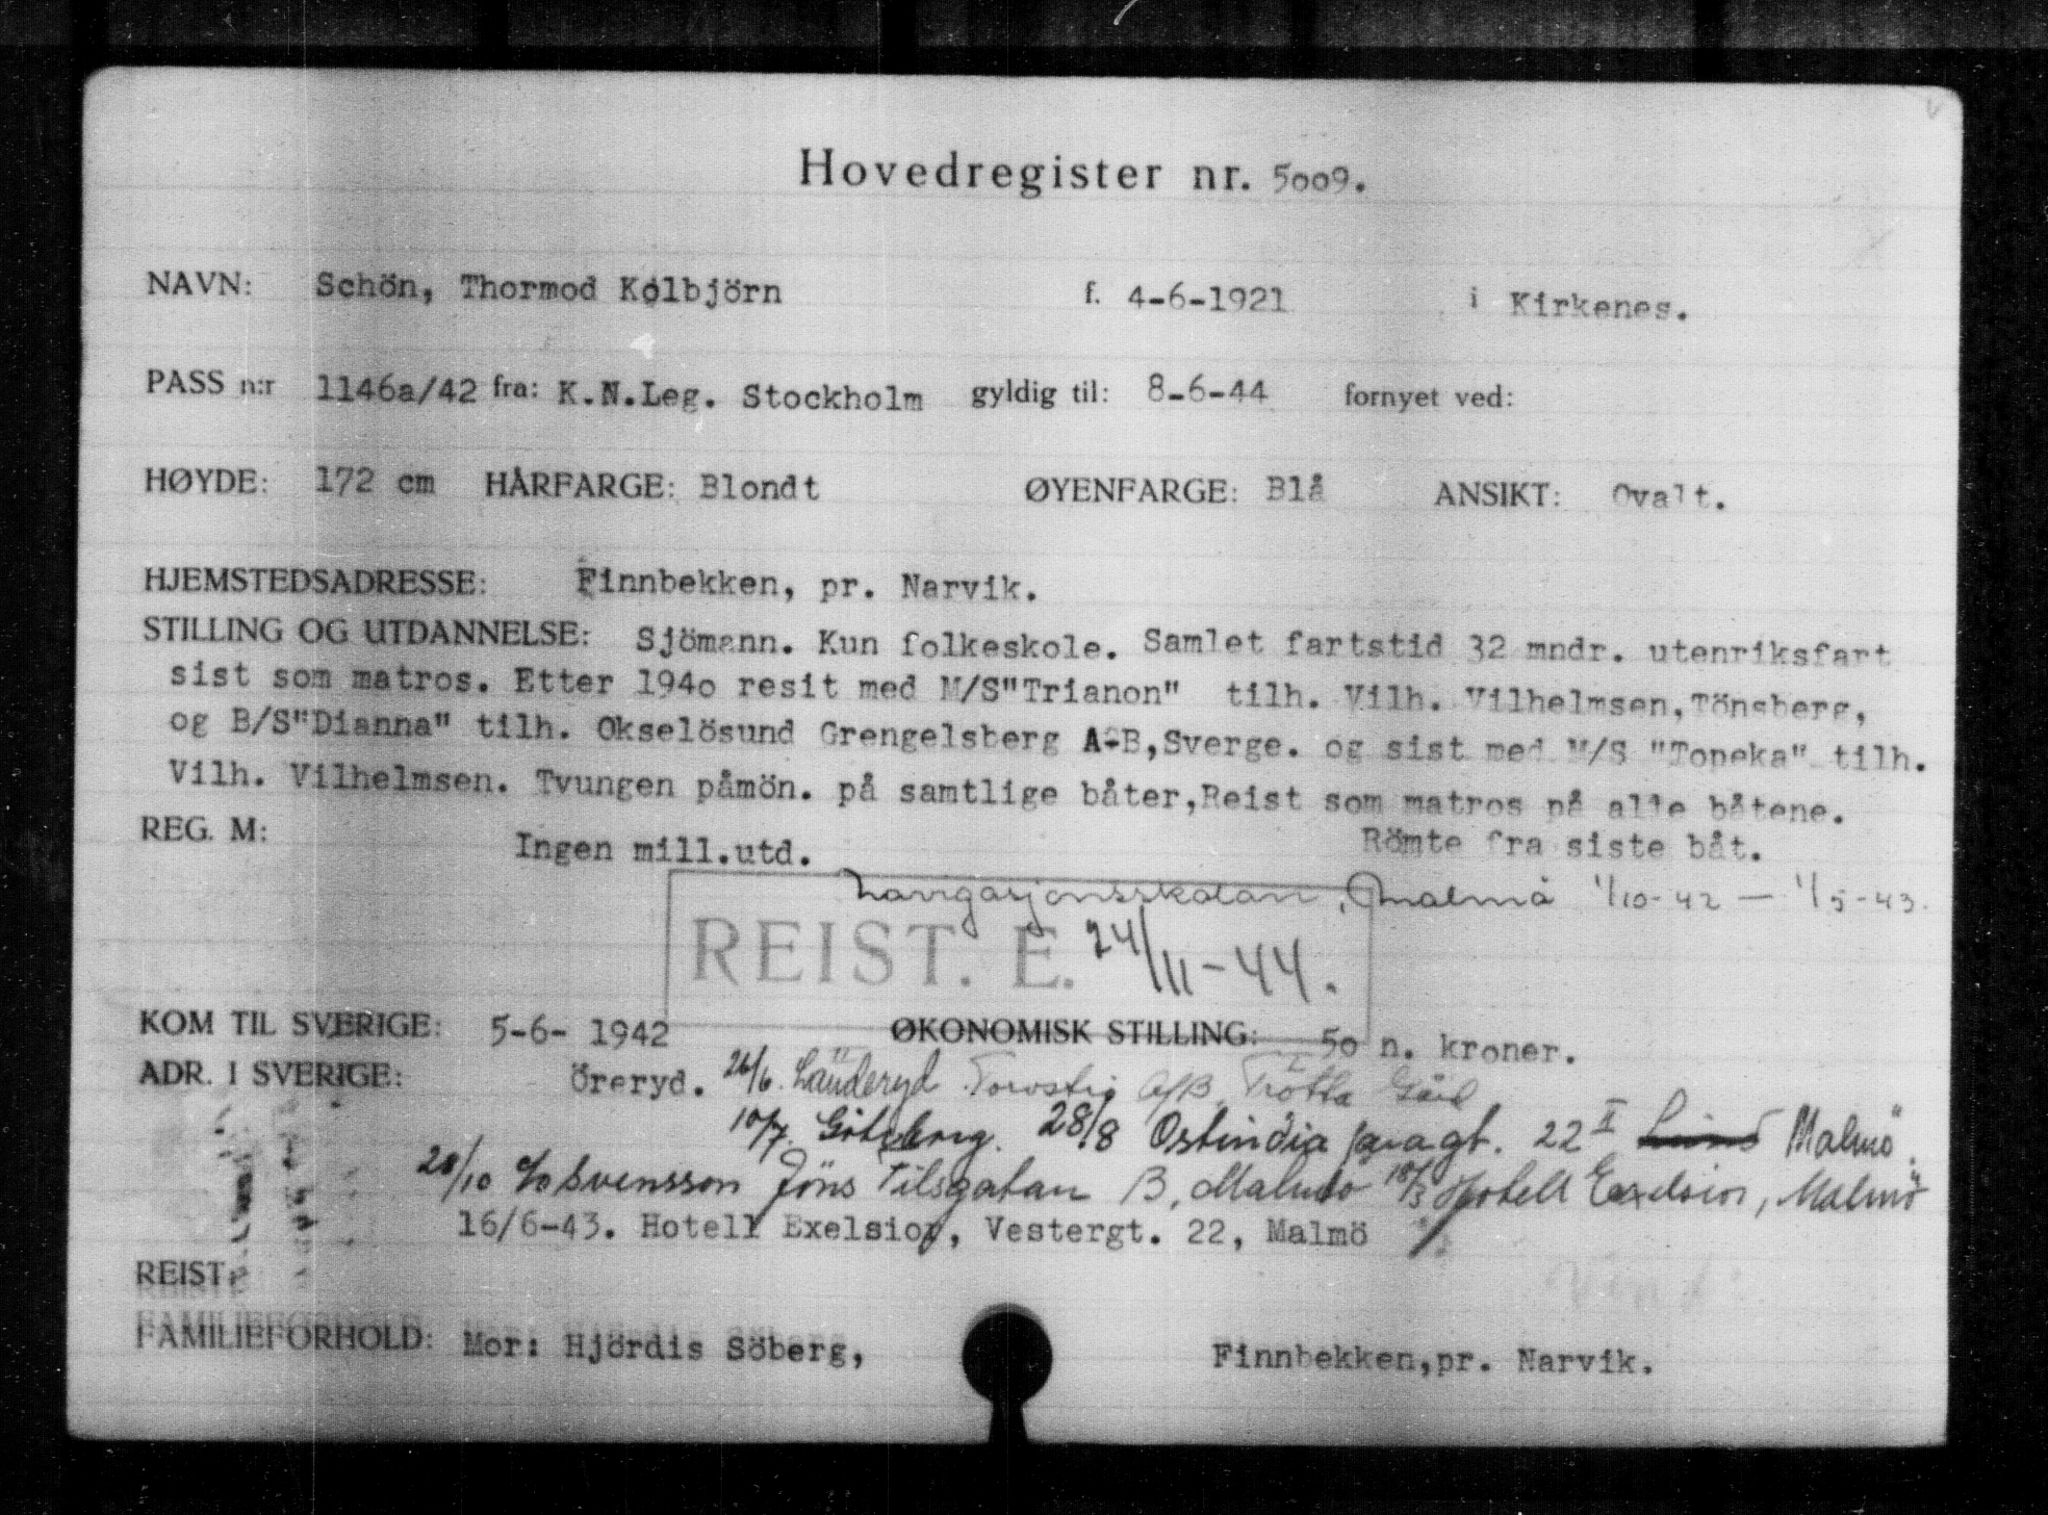 Hovedregister nr. 5009.
NAVN: Schön, Thormod Kolbjörn f. 4-6-1921 i Kirkenes.
PASS n:r 1146a/42 fra: K.N.Leg. Stockholm gyldig til: 8-6-44 fornyet ved:
HØYDE: 172 cm HÅRFARGE: Blondt ØYENFARGE: Blå ANSIKT: Ovalt.
HJEMSTEDSADRESSE: Finnbekken, pr. Narvik.
STILLING OG UTDANNELSE: Sjömann. Kun folkeskole. Samlet fartstid 32 mndr. utenriksfart
sist som matros. Etter 194o resit med M/S"Trianon" tilh. Vilh. Vilhelmsen,Tönsberg,
og B/S"Dianna" tilh. Okselösund Grengelsberg A-B,Sverge. og sist med M/S "Topeka" tilh.
Vilh. Vilhelmsen. Tvungen påmön. på samtlige båter,Reist som matros på alle båtene.
REG. M: Ingen mill.utd. Römte fra siste båt.
Navigasjonsskolan, Malmö 1/10-42 — 1/5-43.
REIST. E. 24/11-44.
KOM TIL SVERIGE: 5-6- 1942 ØKONOMISK STILLING: 5o n. kroner.
ADR. I SVERIGE: Öreryd. 26/6. Länderyd A/B
10/7. Göteborg. 28/8 Ostindia 22 II Lund Malmö.
20/10 c/o Svensson Jöns Filsgatan B, Malmö 18/3 Hotell Exelsior, Malmö
16/6-43. Hotell Exelsior, Vestergt. 22, Malmö
REIST:
FAMILIEFORHOLD: Mor: Hjördis Söberg, Finnbekken,pr. Narvik.